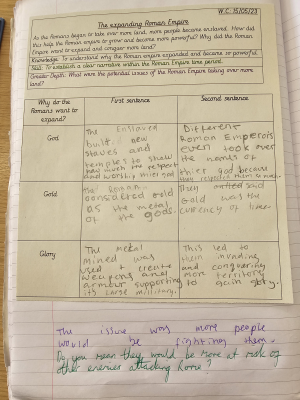 W.C. 15/05/23
The expanding Roman Empire
As the Romans began to take over more land, more people became enslaved. How did
this help the Roman empire to grow and become more powerful? Why did the Roman
Empire want to expand and conquer more land?
Knowledge: To understand why the Roman empire expanded and became so powerful.
Skill: To establish a clear narrative within the Roman Empire time period.
Greater Depth: What were the potential issues of the Roman Empire taking over more
land?
Why do the
Romans want to
expand?
First sentence
Second sentence
God
The Enslaved
built new
staves and
temples to show
how much the respect
and worship thier god
Different
Roman Emperors
even took over
the names of
thier god because
they
Gold
the Romans
considered gold
as the metal
of the gods.
They said
Gold was the
currency of
Glory
The metal
mined was
used to create
weapons and
armour supporting
its large military.
This led to
them invading
and conquering
more territory
to gain glory.
The issue was more people
would be fighting them.
Do you mean they would be more at risk of
other enemies attacking Rome?